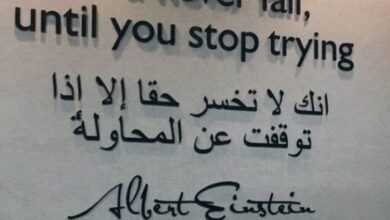 fail,
until you stop trying
انك لا تخسر حقا إلا اذا
توقفت عن المحاولة
Albert Einstein